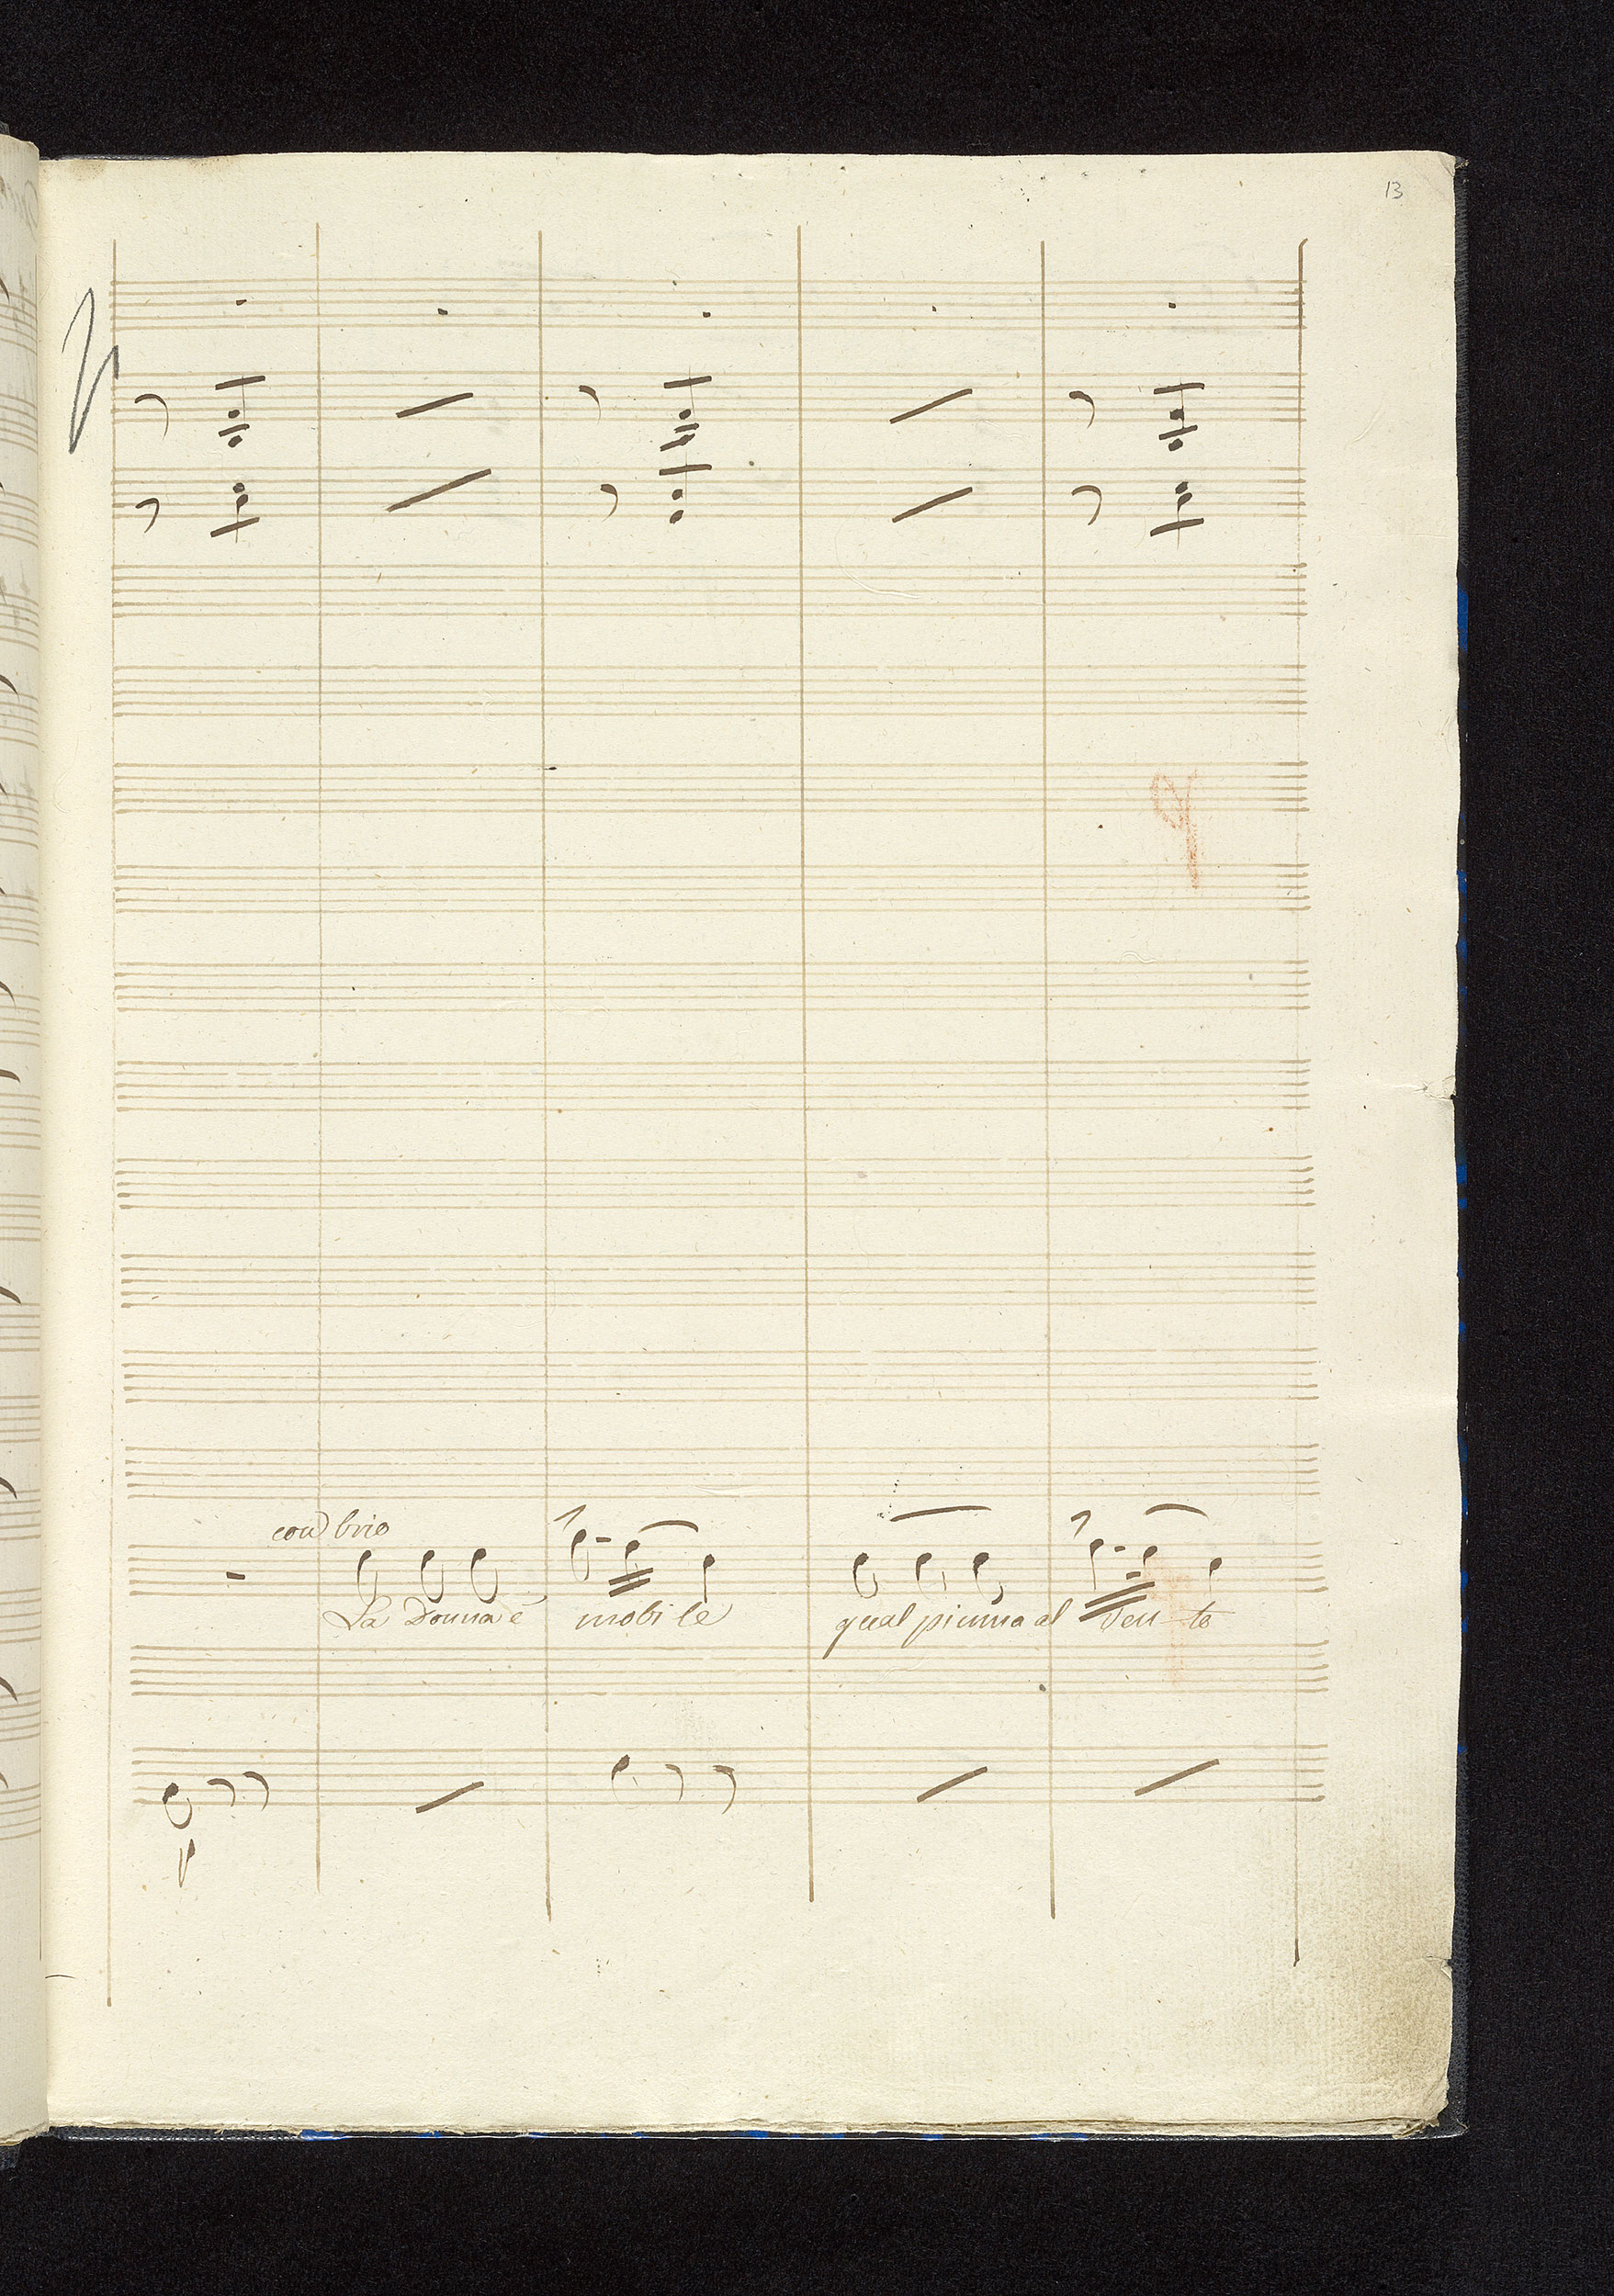 13
con brio
La Donna è mobile qual piuma al ven to